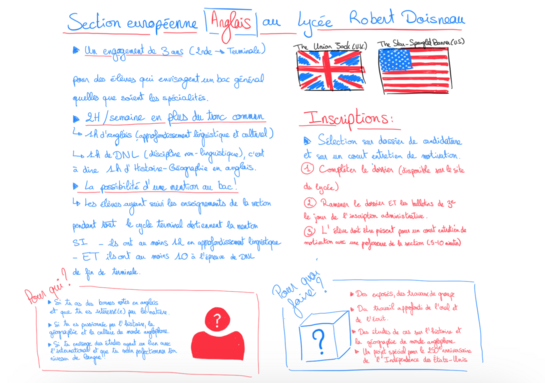 Section européenne Anglais au Lycée Robert Doisneau
▶ Un engagement de 3 ans (2nde → Terminale)
pour des élèves qui envisagent un bac général
quelles que soient les spécialités.
▶ 2H/semaine en plus du tronc commun
↳ 1h d'anglais (approfondissement linguistique et culturel)
↳ 1h de DNL (discipline non-linguistique), c'est
à dire 1h d'Histoire-Géographie en anglais.
▶ La possibilité d'une mention au bac!
↳ Les élèves ayant suivi les enseignements de la section
pendant tout le cycle terminal obtiennent la mention
SI - ils ont au moins 12 en approfondissement linguistique
- ET ils ont au moins 10 à l'épreuve de DNL
de fin de terminale.
The Union Jack (UK)
The Star-Spangled Banner (US)
Inscriptions:
▶ Sélection sur dossier de candidature
et sur un court entretien de motivation
① Compléter le dossier (disponible sur le site
du lycée)
② Ramener le dossier ET les bulletins de 3e
le jour de l'inscription administrative.
③ L'élève doit être présent pour un court entretien de
motivation avec un professeur de la section (5-10 minutes)
Pour qui?
▶ Si tu as des bonnes notes en anglais
et que tu es intéressé(e) par la matière.
▶ Si tu es passionné par l'histoire, la
géographie et la culture du monde anglophone.
▶ Si tu envisages des études ayant un lien avec
l'international et que tu veux perfectionner ton
niveau de langue!!
?
Pour quoi
faire?
?
▶ Des exposés, des travaux de groupe
▶ Du travail approfondi de l'oral et
de l'écrit.
▶ Des études de cas sur l'histoire et
la géographie du monde anglophone.
▶ Un projet spécial pour le 250e anniversaire
de l'Indépendance des Etats-Unis